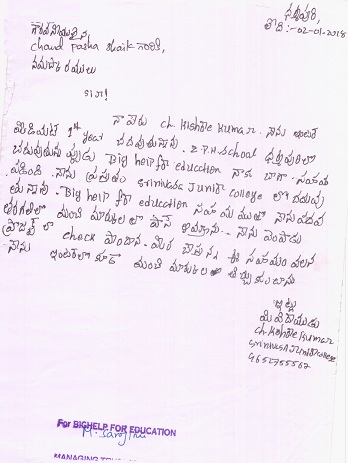 ధర్మపురి,
తేది :- 02-01-2018
గౌరవనీయులైన,
chand pasha shaik గారికి,
నమస్కారములు
సార్!
నా పేరు ch. kishore kumar. నేను ఇంటర్
మీడియట్ 1st year చదువుతున్నాను. Z.P.H. School ధర్మపురిలో
చదువుతున్నప్పుడు Big help for education నాకు బాగా సహాయ
పడింది. నేను ప్రస్తుతం srinivasa Junior college లో చదువు
తున్నాను. Big help for education సహాయముతో నేను పదవ
తరగతిలో మంచి మార్కులలో పాస్ అయ్యాను.
check పొందాను. మీరు చేస్తున్న ఈ సహాయం వలన
నేను ఇంటర్‌లో కూడా మంచి మార్కులు తెచ్చుకుంటాను
ఇట్లు
మీ విధేయుడు
ch. kishore kumar
srinivasa Junior college
9652755567
For BIGHELP FOR EDUCATION